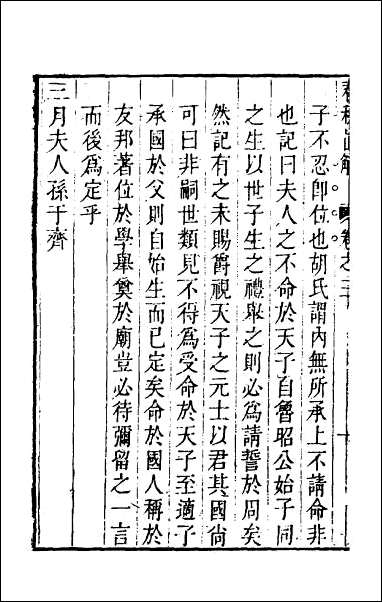 春秋直解 卷之三
子不忍卽位也胡氏謂內無所承上不請命非
也記曰夫人之不命於天子自魯昭公始子同
之生以世子生之禮舉之則必爲請誓於周矣
然記有之未賜爵視天子之元士以君其國尙
可曰非嗣世類見不得爲受命於天子至適子
承國於父則自始生而已定矣命於國人稱於
友邦著位於學舉奠於廟豈必待彌留之一言
而後爲定乎
三月夫人孫于齊